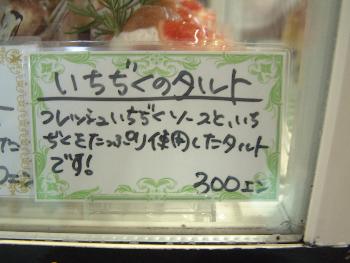 いちぢくのタルト
フレッシュいちぢくソースと、いち
ぢくをたっぷり使用したタルト
です!
300エン